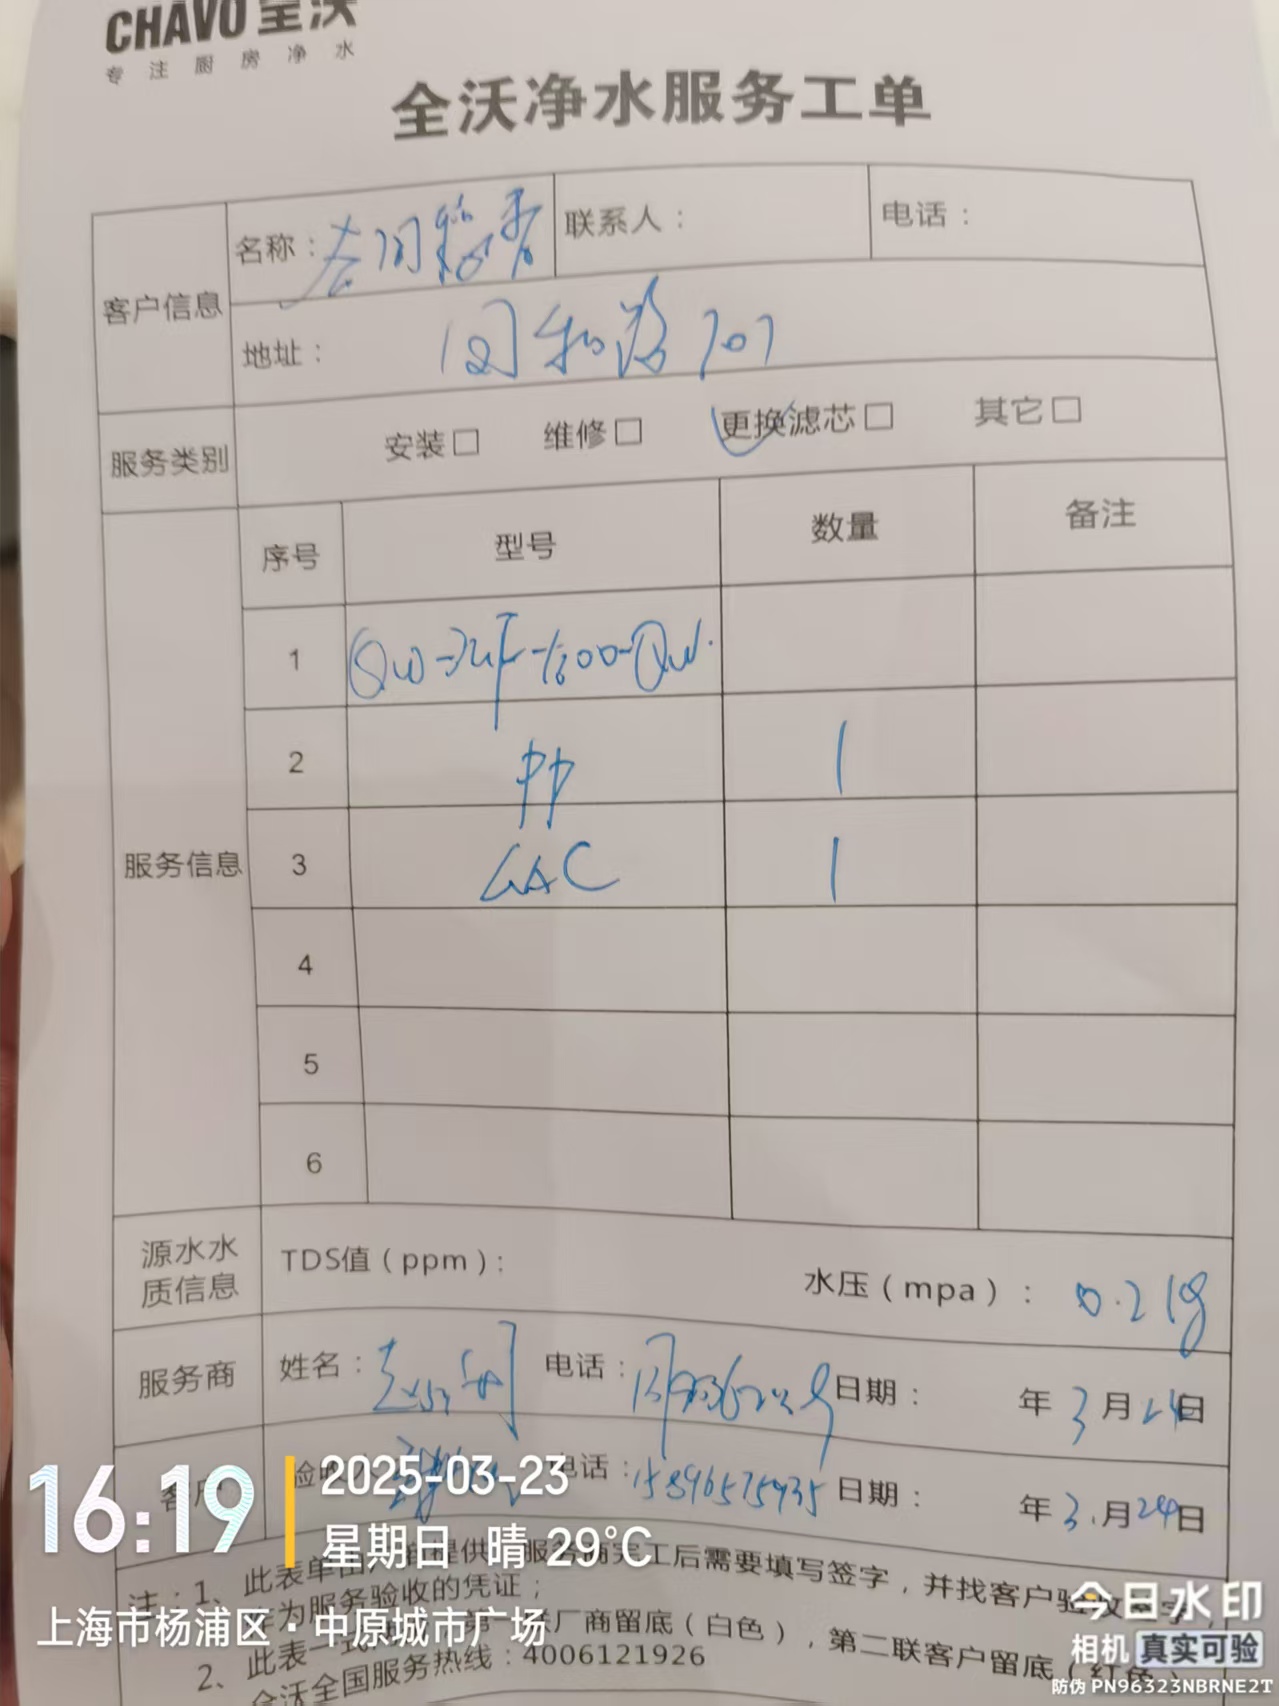 CHAVO 全沃
专注厨房净水
全沃净水服务工单
客户信息 名称： 联系人： 电话：
地址： 707
服务类别 安装□ 维修□ 更换滤芯□ 其它□
服务信息 序号 型号 数量 备注
1
2 PP 1
3 GAC 1
4
5
6
源水水质信息 TDS值（ppm）： 水压（mpa）： 0.218
服务商 姓名： 电话： 日期： 年 3月24日
客户 验收 电话：15896575935 日期： 年 3月24日
注：1、此表单由 提供 服务商完工后需要填写签字，并找客户验收签字，
作为服务验收的凭证；
2、此表一式 第一联厂商留底（白色），第二联客户留底（红色）
全沃全国服务热线：4006121926
16:19
2025-03-23
星期日 晴 29°C
上海市杨浦区·中原城市广场
今日水印
相机 真实可验
防伪 PN96323NBRNE2T